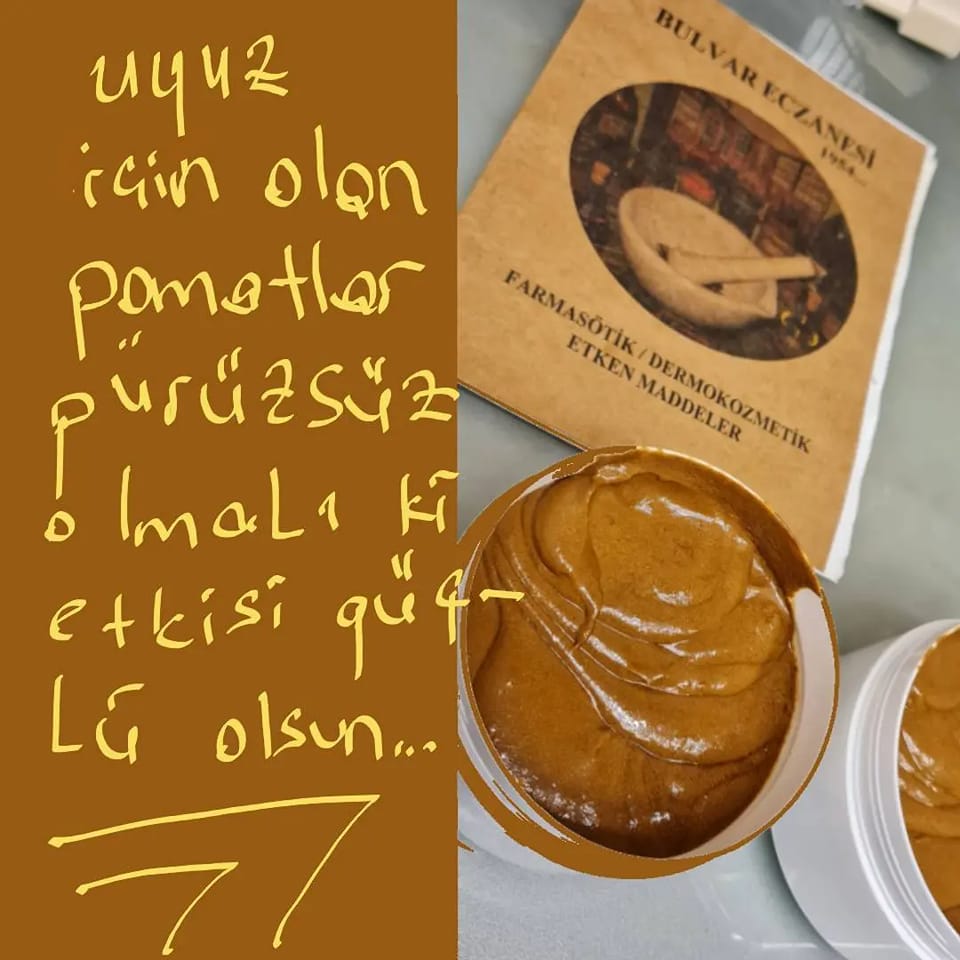 uyuz
için olan
pomatlar
pürüzsüz
olmalı ki
etkisi güç-
lü olsun...
BULVAR ECZANESİ
1954...
FARMASÖTİK / DERMOKOZMETİK
ETKEN MADDELER